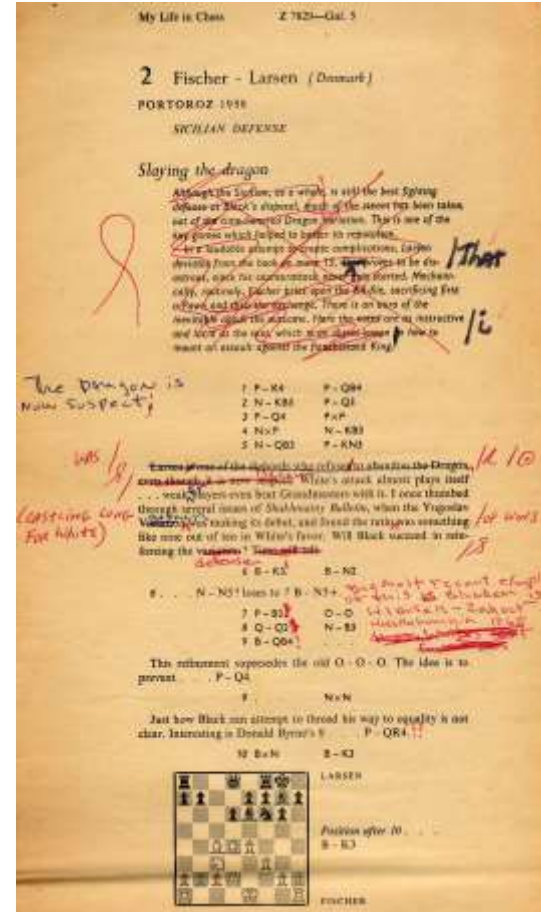 My Life in Chess Z 7829—Gal. 5
2 Fischer - Larsen (Denmark)
PORTOROZ 1958
SICILIAN DEFENSE
Slaying the dragon
Although the Sicilian, as a whole, is still the best fighting
defense at Black's disposal, much of the sweet has been taken
out of the Dragon Variation. This is one of the
key games which helped to batter its reputation.
In a laudable attempt to create complications, Larsen
deviates from the book on move 15. to be dis-
astrous, since his counterattack never started. Mechani-
cally, routinely, Fischer pries open the file, sacrificing first
a Pawn and then the exchange. There is an aura of the
inevitable about the outcome. Here the notes are as instructive
and lucid as the text, which is an object lesson in how to
mount an assault against the fianchettoed King.
/That
/i
The Dragon is
Now suspect;
1 P-K4 P-QB4
2 N-KB3 P-Q3
3 P-Q4 PxP
4 NxP N-KB3
5 N-QB3 P-KN3
was
Larsen is one of the diehards who refuse to abandon the Dragon,
even though White's attack almost plays itself
. . . weak players even beat Grandmasters with it. I once thumbed
through several issues of Shakhmatny Bulletin, when the Yugoslav
was making its debut, and found the ratio was something
like nine out of ten in White's favor. Will Black succeed in rein-
forcing the variation?
(castling long
for White)
/of wins
defense
6 B-K3 B-N2
6 . . . . N-N5? loses to 7 B-N5+.
most recent
of this
7 P-B3 O-O
8 Q-Q2 N-B3
9 B-QB4
This refinement supersedes the old O-O-O. The idea is to
prevent . . . . P-Q4.
9 . . . . NxN
Just how Black can attempt to thread his way to equality is not
clear. Interesting is Donald Byrne's 9 . . . . P-QR4!?
10 BxN B-K3
LARSEN
Position after 10 . . . .
B-K3
FISCHER